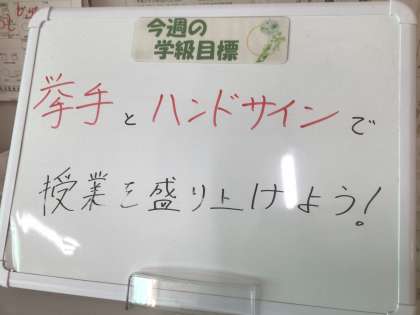 今週の
学級目標
挙手とハンドサインで
授業を盛り上げよう!